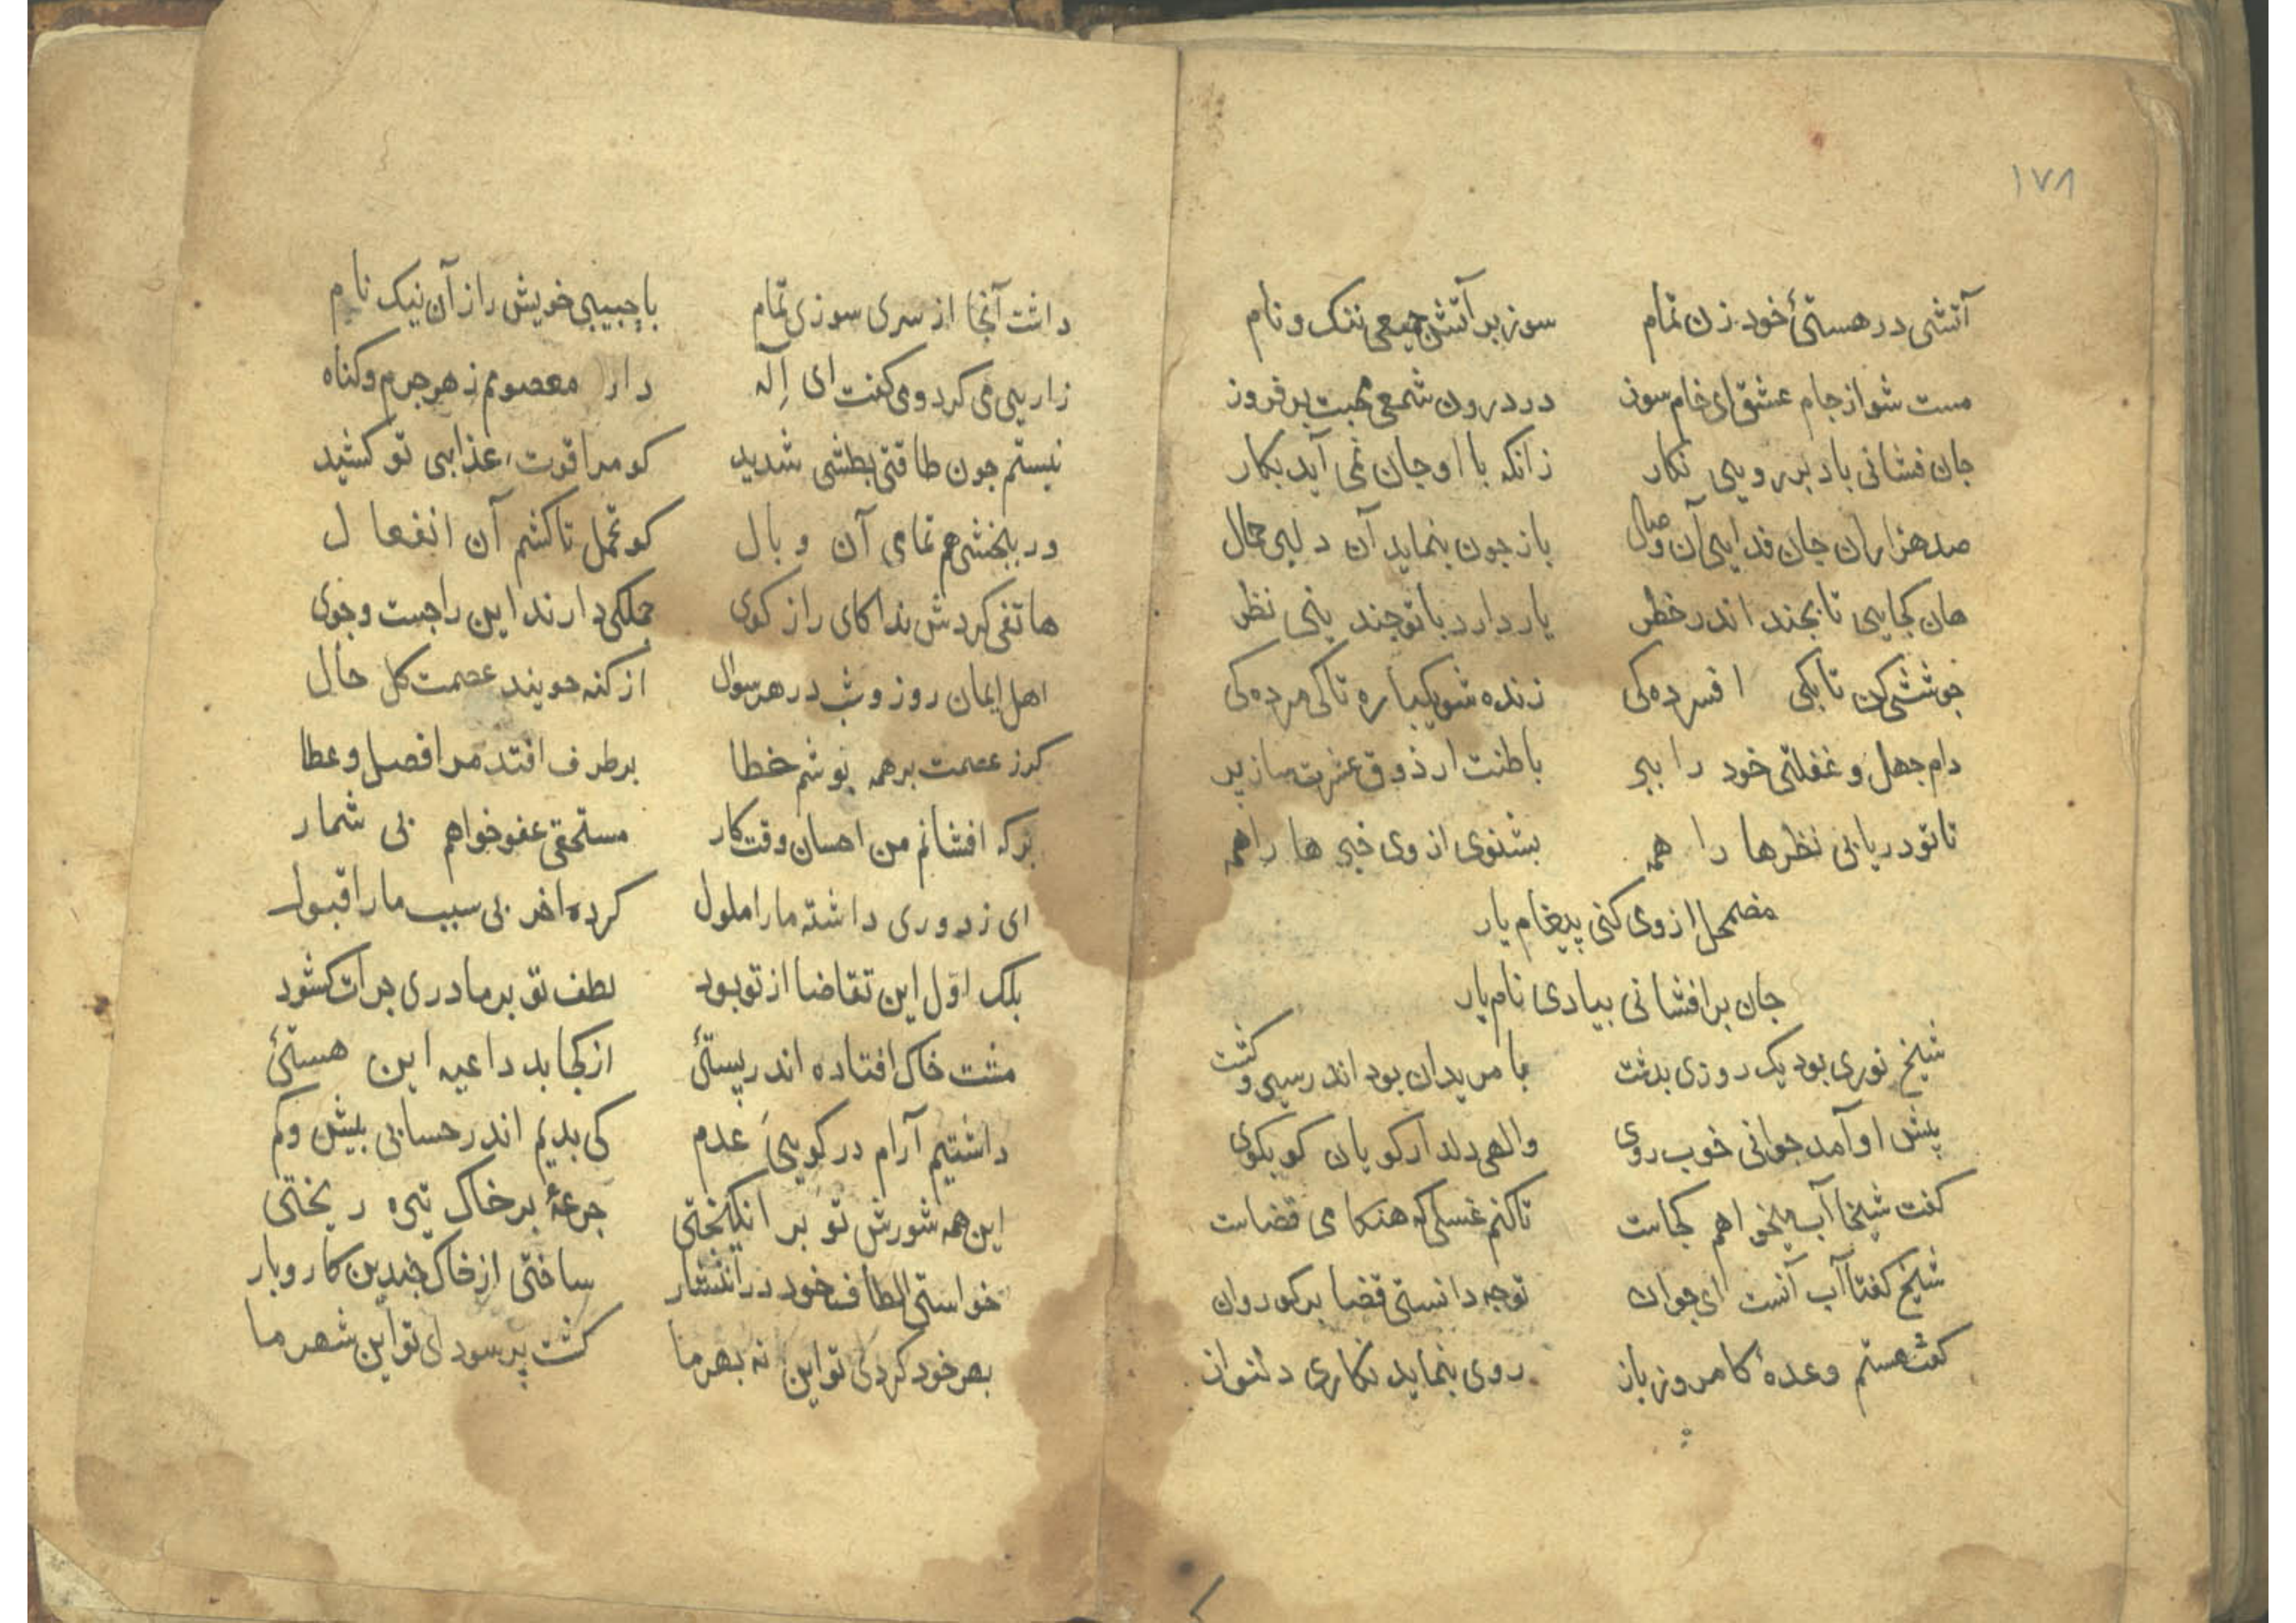 ١٧٨
آتشی در هستئ خود زن تمام سوز بر آتش جمیعی ننک و نام
مست شو از جام عشق ای خام سوز در درون شمعی محبت بر فروز
جان فشانی باد بر رویی نکار زانکه با او جان نمی آید بکار
صد هزاران جان فدایی آن وصال باز جون بنماید آن دلبی جمال
هان کجایی تا بجند اندر خطر یار دارد با تو جند ینی نظر
جوششی کن تا بکی افسرده کی زنده شو یکباره تا کی مرده کی
دام جهل و غفلتی خود را ببر باطنت از ذوق عشرت ساز پر
تا تو دریابی نظرها را همه بشنوی از وی خبر ها را همه
مضمحل از وی کنی پیغام یار
جان بر افشانی بیادی نام یار
شیخ نوری بود یک روزی بدشت با مریدان بود اندر سیر و کشت
پیش او آمد جوانی خوب روی والهی دلدار کویان کو بکوی
کفت شیخا آب میخواهم کجاست تا کنم غسلی که هنکامی قضاست
شیخ کفتا آب آنست ای جوان تو جه دانستی قضا بر کو روان
کفت هستم وعدهٔ کامروز باز روی بنماید نکاری دلنواز
داشت آنجا از سری سوزی تمام با حبیبی خویش راز آن نیک نام
زاریی می کرد و می کفت ای اِلٓه دار معصومم ز هر جرم و کناه
نیستم جون طاقتی بطشی شدید کو مرا قوت عذابی تو کشید
ور ببخشی هم تمامی آن وبال کو تحمل تا کشم آن انفعال
هاتفی کردش ندا کای راز کوی جملکی دارند این را جست و جوی
اهل ایمان روز و شب در هر سوال از کنه جویند عصمت کل حال
کر ز عصمت بر همه پوشم خطا بر طرف افتد مرا فضل و عطا
بر که افشانم من احسان وقت کار مستحقی عفو خواهم بی شمار
ای ز دوری داشته ما را ملول کرده اخر بی سبب ما را قبول
بلک اوّل این تقاضا از تو بود لطف تو بر ما دری جرات کشود
مشت خاک افتاده اندر پستئ از کجا بد داعیه این هستئ
داشتیم آرام در کویی عدم کی بدیم اندر حسابی بیش و کم
این همه شورش تو بر انکیختی جرعهٔ بر خاک تیره ریختی
خواستی الطاف خود در انتشار ساختی از خاک جندین کار و بار
بهر خود کردی تو این نه بهر ما کشت پر سودای تو این شهر ما